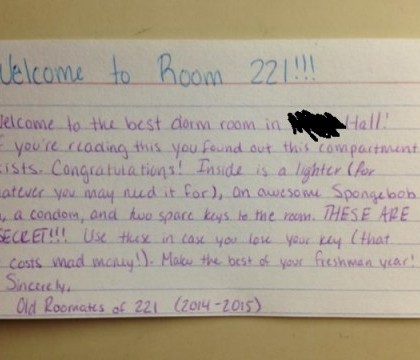 Welcome to Room 221!!!
Welcome to the best dorm room in Hall!
If you're reading this you found out this compartment
exists. Congratulations! Inside is a lighter (for
whatever you may need it for), an awesome Spongebob
a condom, and two spare keys to the room. THESE ARE
SECRET!!! Use these in case you lose your key (that
costs mad money!). Make the best of your freshman year!
Sincerely,
Old Roomates of 221 (2014-2015)